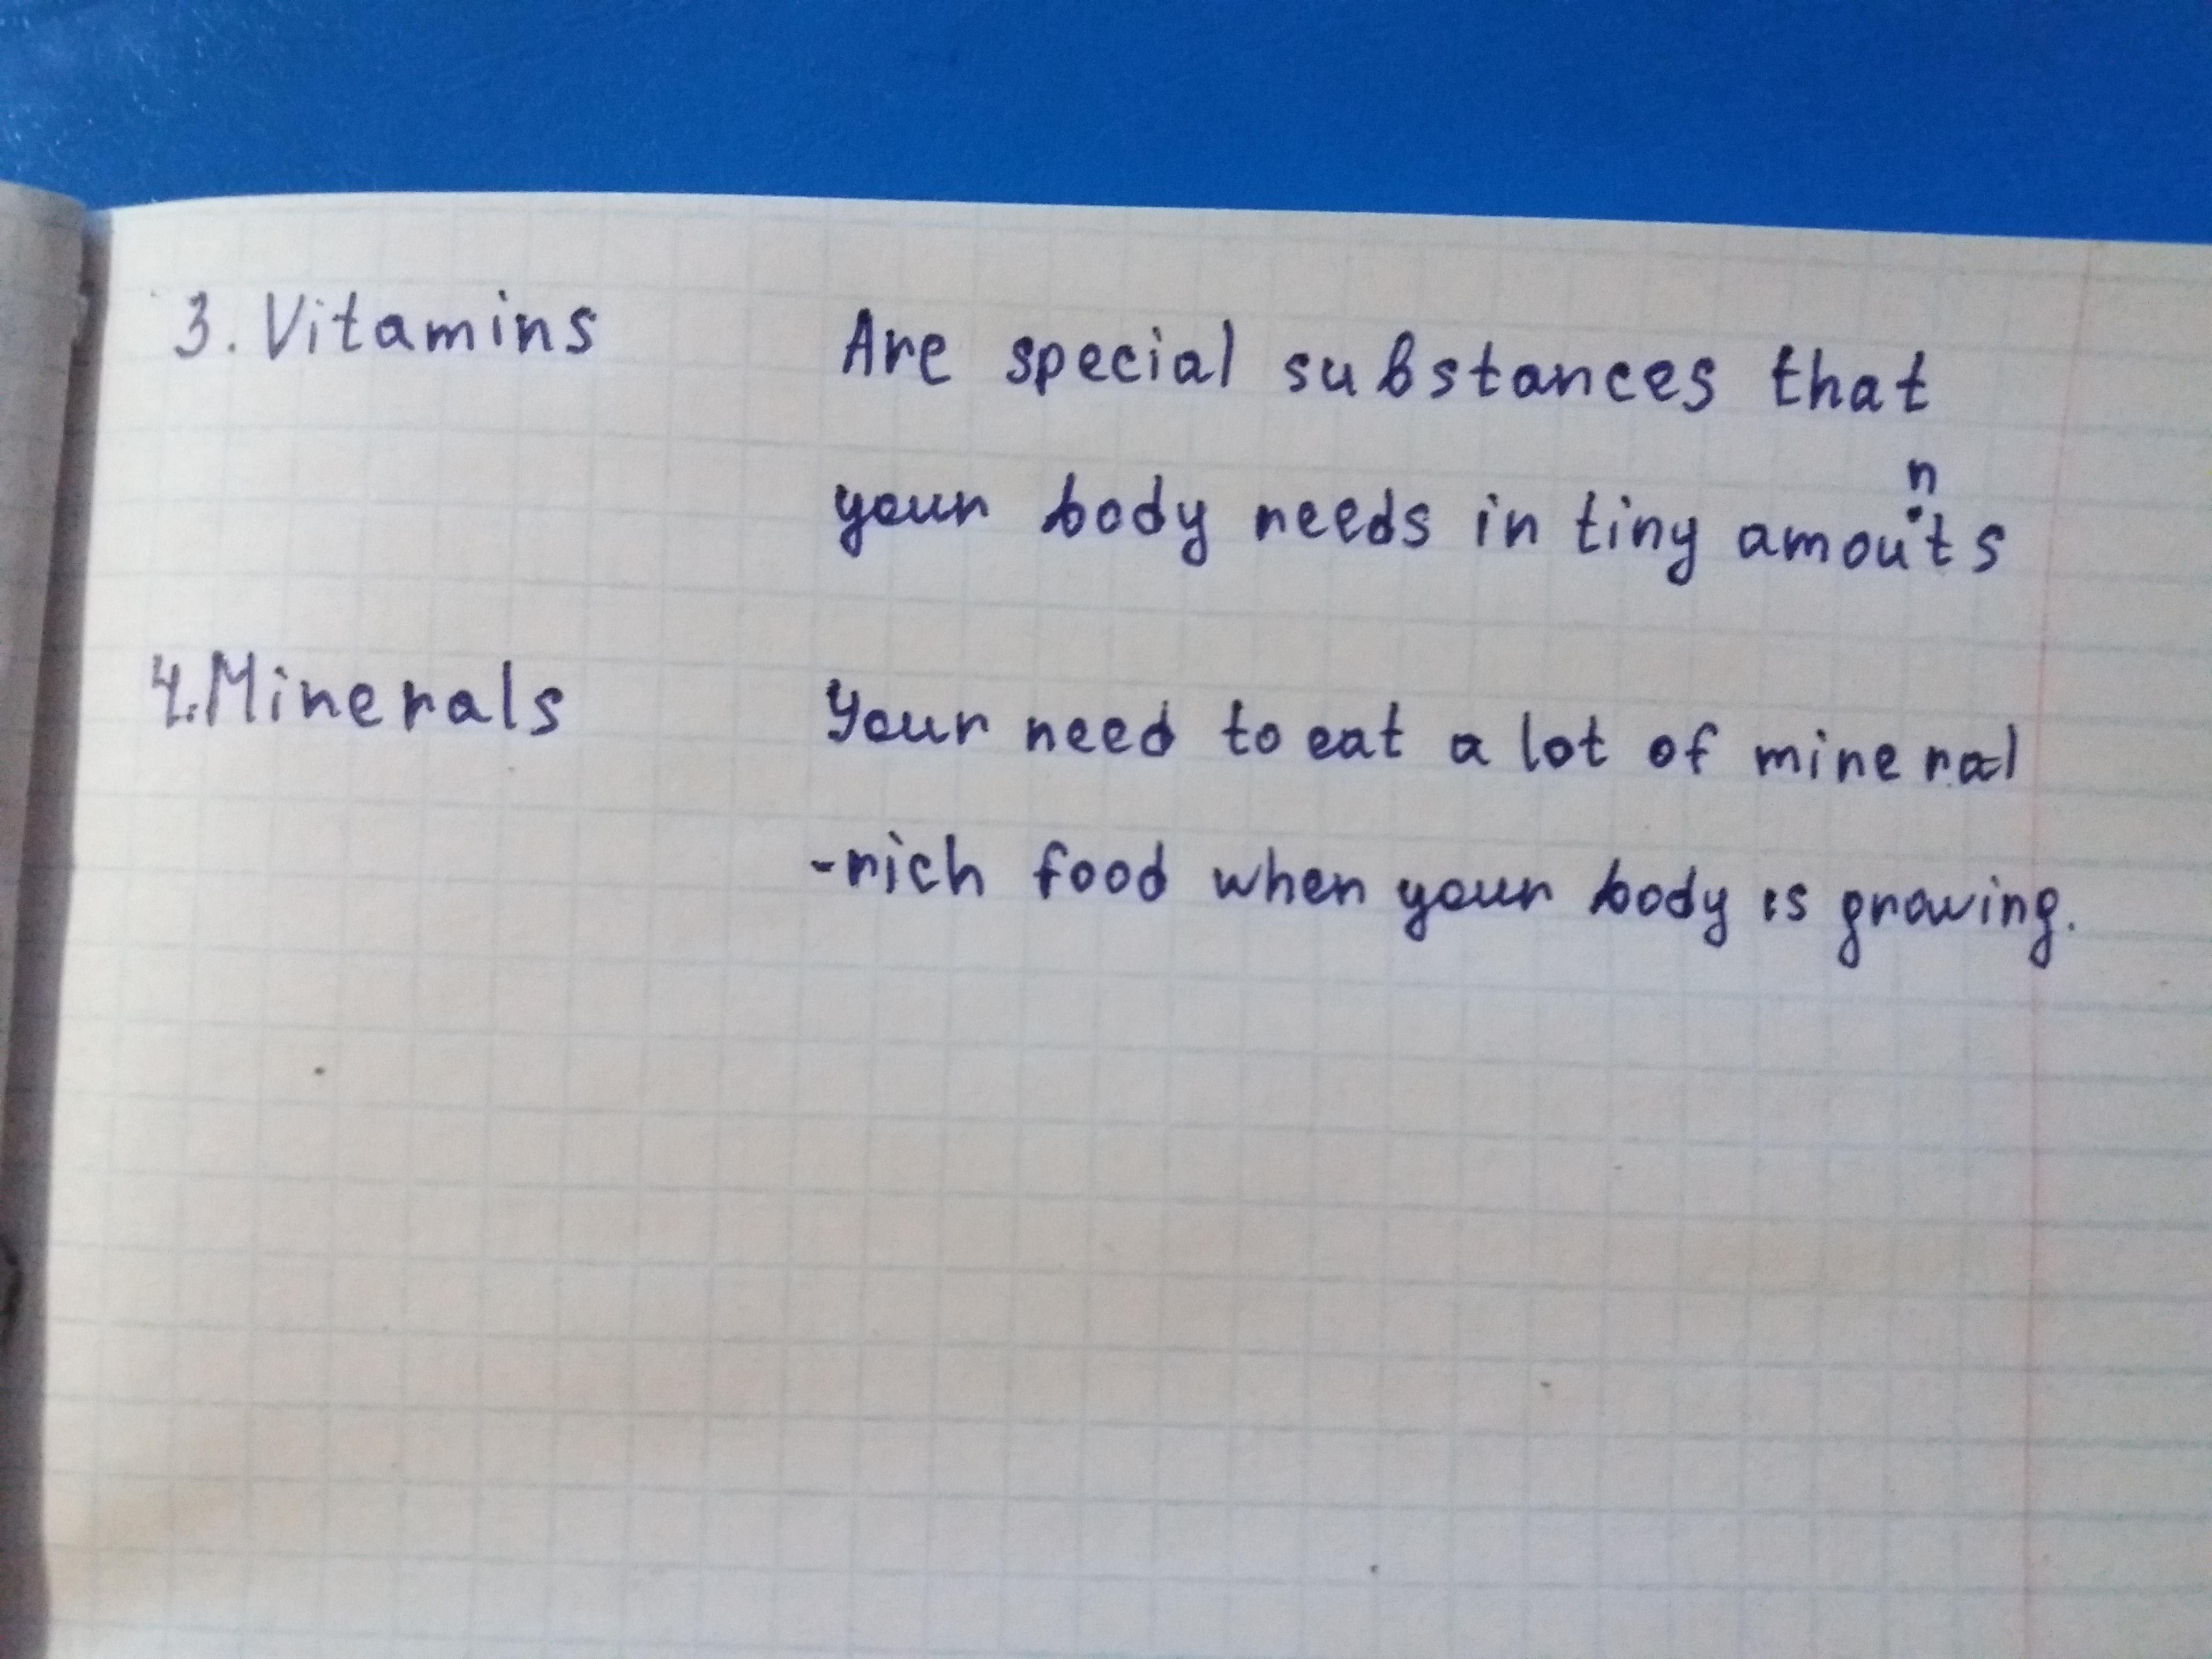 3. Vitamins Are special substances that
your body needs in tiny amounts
4. Minerals Your need to eat a lot of mineral
-rich food when your body is growing.